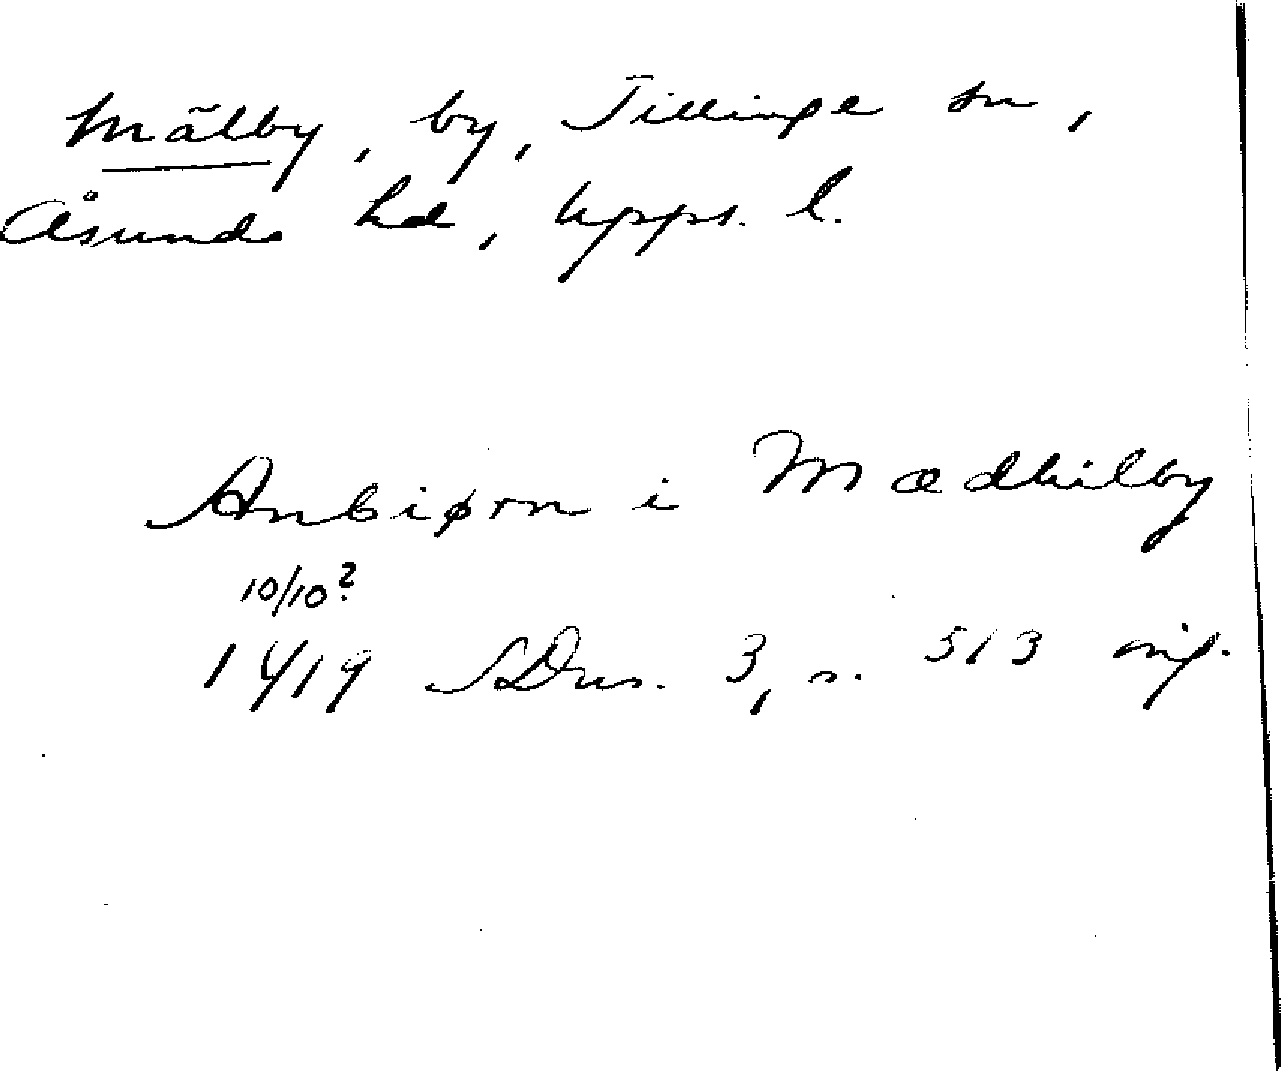 Mälby, by, Tillinge sn,
Åsunda hd, Upps. l.
Anbiørn i Mædhilby
10/10?
1419 SDns. 3, s. 513 orig.